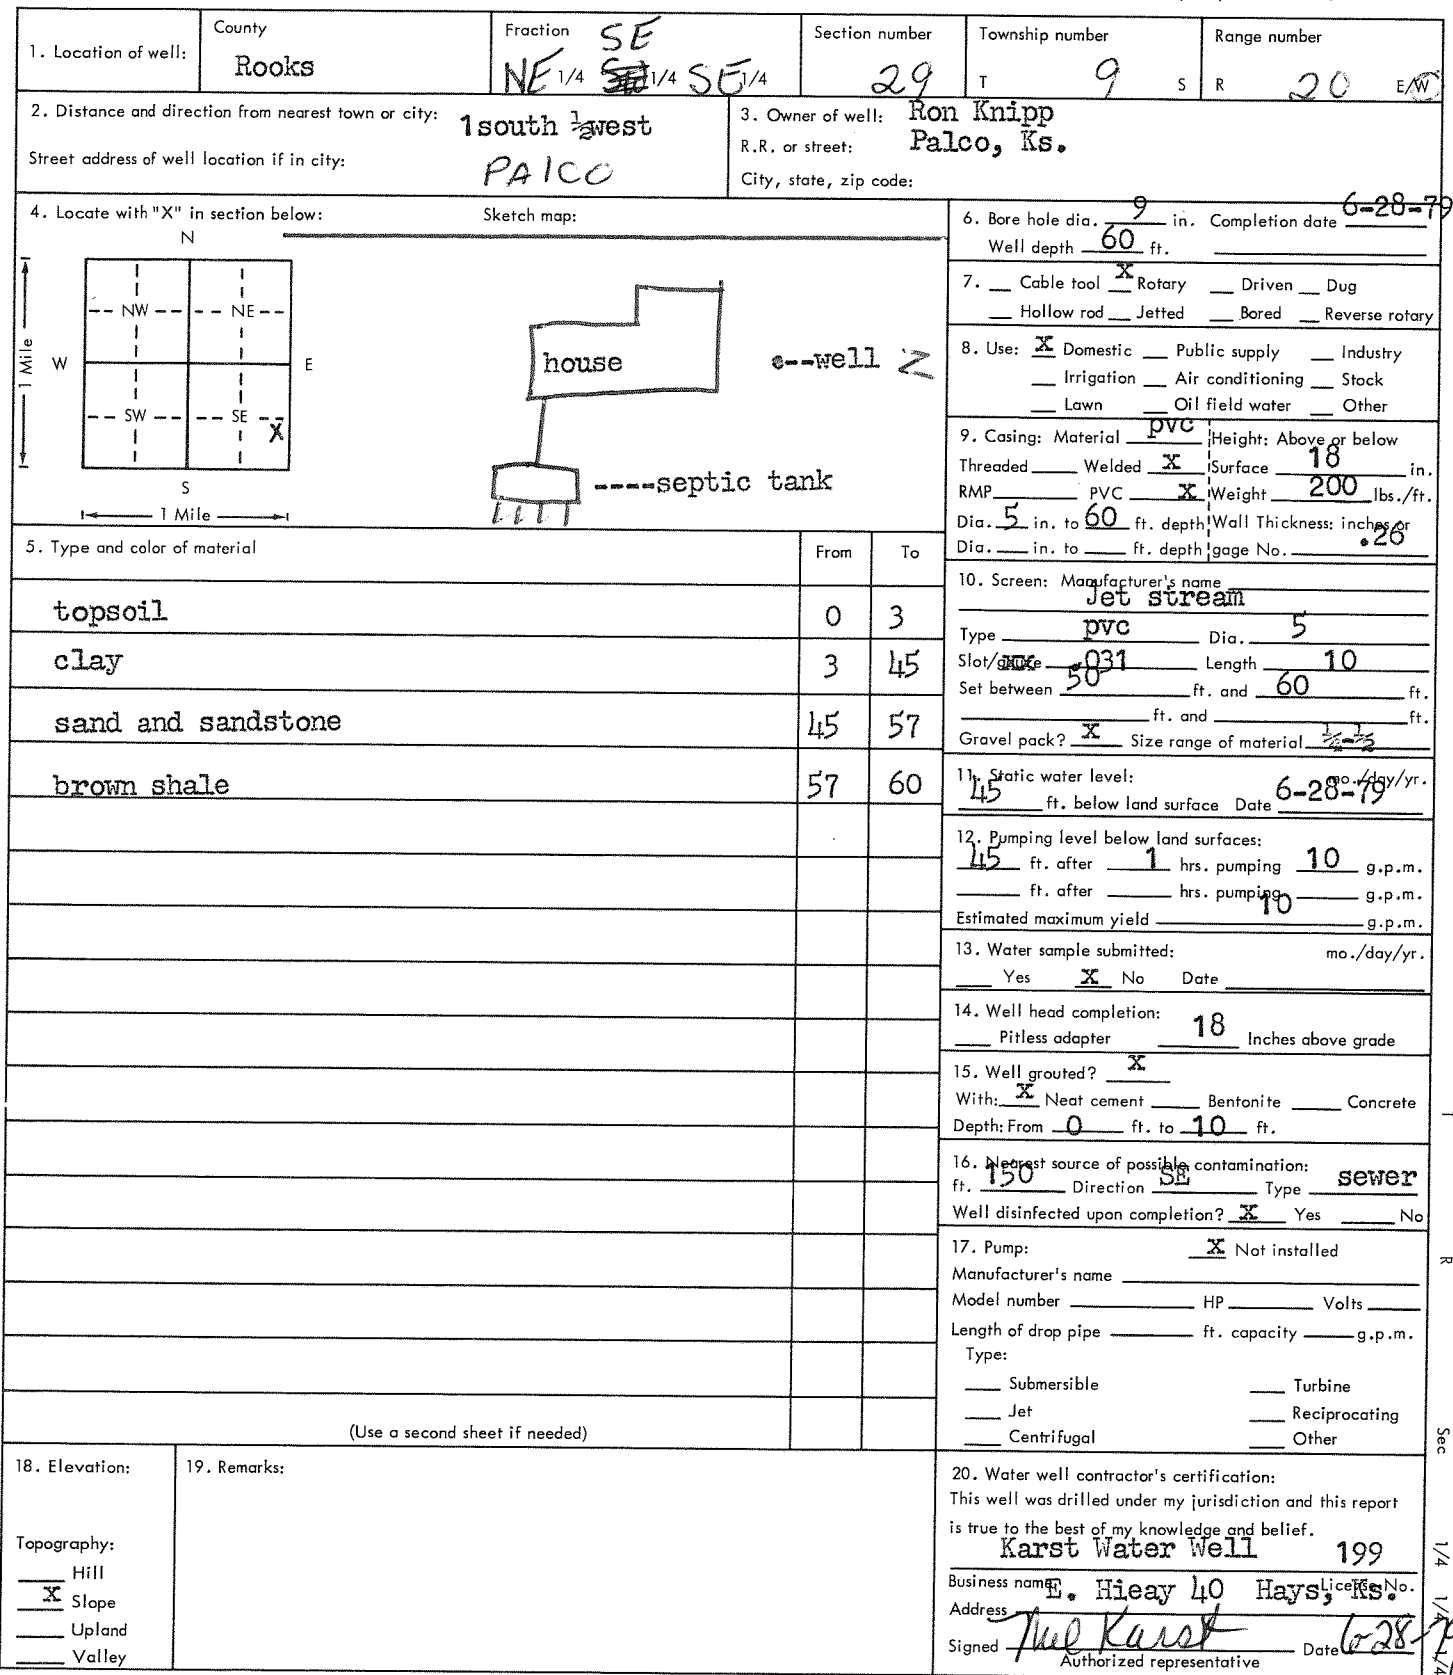 1. Location of well:
County
Rooks
Fraction SE
NE 1/4 1/4 SE 1/4
Section number
29
Township number
T 9 S
Range number
R 20 E/W
2. Distance and direction from nearest town or city: 1south ½west
Street address of well location if in city: PAlCO
3. Owner of well: Ron Knipp
R.R. or street: Palco, Ks.
City, state, zip code:
4. Locate with "X" in section below:
Sketch map:
N
NW NE
W E
SW SE
X
S
1 Mile
1 Mile
house
--well Z
----septic tank
5. Type and color of material From To
topsoil 0 3
clay 3 45
sand and sandstone 45 57
brown shale 57 60
(Use a second sheet if needed)
6. Bore hole dia. 9 in. Completion date 6-28-79
Well depth 60 ft.
7. Cable tool X Rotary Driven Dug
Hollow rod Jetted Bored Reverse rotary
8. Use: X Domestic Public supply Industry
Irrigation Air conditioning Stock
Lawn Oil field water Other
9. Casing: Material pvc Height: Above or below
Threaded Welded X Surface 18 in.
RMP PVC X Weight 200 lbs./ft.
Dia. 5 in. to 60 ft. depth Wall Thickness: inches or
Dia. in. to ft. depth gage No. .26
10. Screen: Manufacturer's name
Jet stream
Type pvc Dia. 5
Slot/ .031 Length 10
Set between 50 ft. and 60 ft.
ft. and ft.
Gravel pack? X Size range of material
11. Static water level: mo./day/yr.
45 ft. below land surface Date 6-28-79
12. Pumping level below land surfaces:
45 ft. after 1 hrs. pumping 10 g.p.m.
ft. after hrs. pumping g.p.m.
Estimated maximum yield 10 g.p.m.
13. Water sample submitted: mo./day/yr.
Yes X No Date
14. Well head completion:
Pitless adapter 18 Inches above grade
15. Well grouted? X
With: X Neat cement Bentonite Concrete
Depth: From 0 ft. to 10 ft.
16. Nearest source of possible contamination:
ft. 150 Direction SE Type sewer
Well disinfected upon completion? X Yes No
17. Pump: X Not installed
Manufacturer's name
Model number HP Volts
Length of drop pipe ft. capacity g.p.m.
Type:
Submersible Turbine
Jet Reciprocating
Centrifugal Other
18. Elevation:
Topography:
Hill
X Slope
Upland
Valley
19. Remarks:
20. Water well contractor's certification:
This well was drilled under my jurisdiction and this report
is true to the best of my knowledge and belief.
Karst Water Well 199
Business name License No.
Address E. Hieay 40 Hays, Ks.
Signed Karst Date 6-28-
Authorized representative
R
Sec
1/4 1/4 1/4